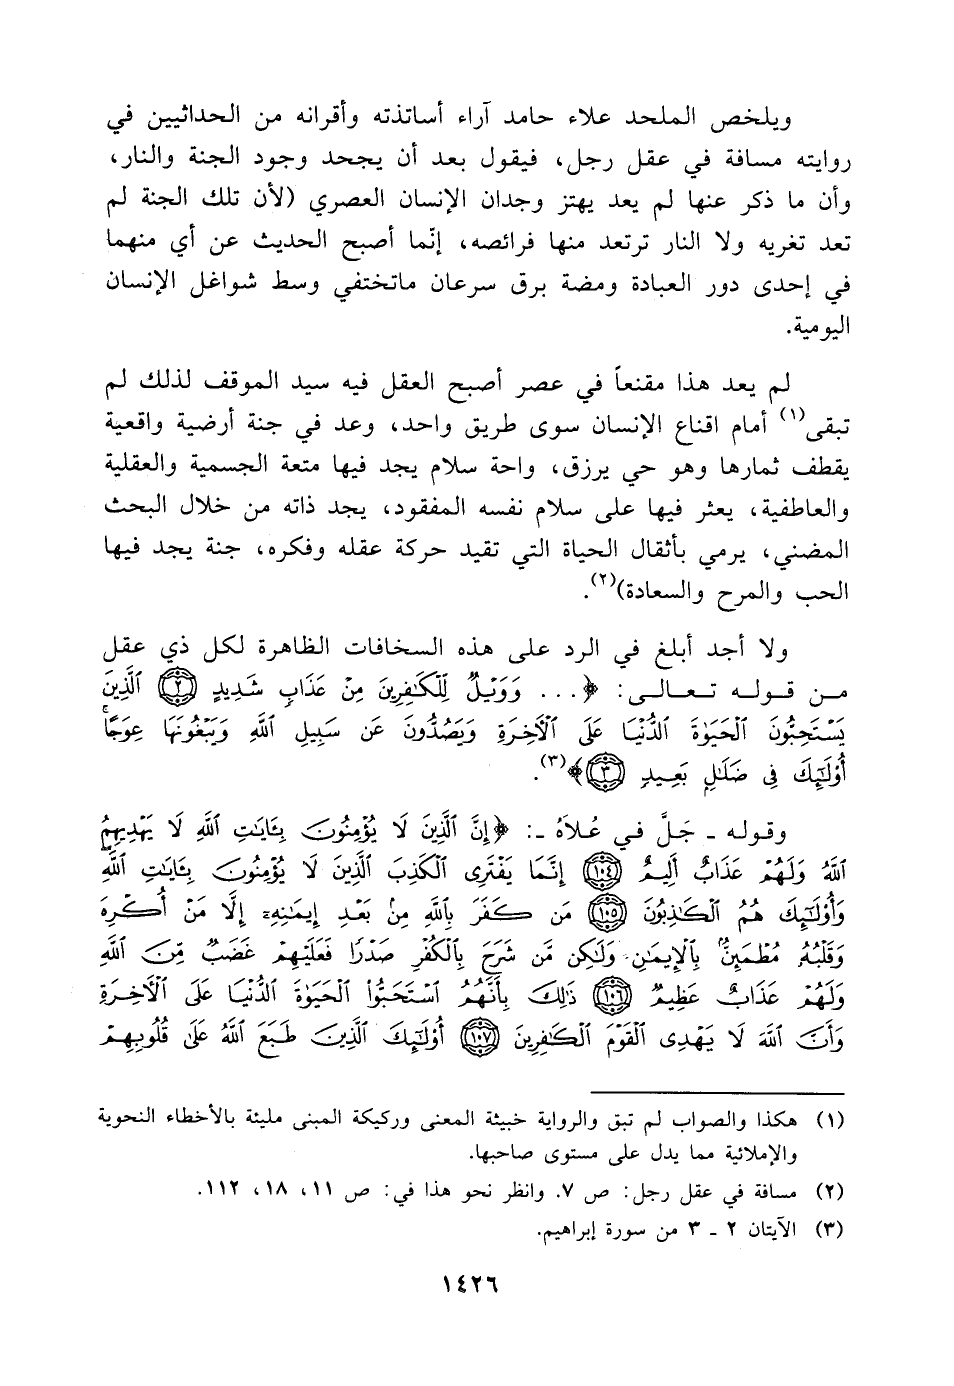 ويلخص الملحد علاء حامد آراء أساتذته وأقرانه من الحداثيين في
روايته مسافة في عقل رجل، فيقول بعد أن يجحد وجود الجنة والنار،
وأن ما ذكر عنها لم يعد يهتز وجدان الإنسان العصري (لأن تلك الجنة لم
تعد تغريه ولا النار ترتعد منها فرائصه، إنّما أصبح الحديث عن أي منهما
في إحدى دور العبادة ومضة برق سرعان ماتختفي وسط شواغل الإنسان
اليومية.
لم يعد هذا مقنعاً في عصر أصبح العقل فيه سيد الموقف لذلك لم
تبقى(١) أمام اقناع الإنسان سوى طريق واحد، وعد في جنة أرضية واقعية
يقطف ثمارها وهو حي يرزق، واحة سلام يجد فيها متعة الجسمية والعقلية
والعاطفية، يعثر فيها على سلام نفسه المفقود، يجد ذاته من خلال البحث
المضني، يرمي بأثقال الحياة التي تقيد حركة عقله وفكره، جنة يجد فيها
الحب والمرح والسعادة)(٢).
ولا أجد أبلغ في الرد على هذه السخافات الظاهرة لكل ذي عقل
من قوله تعالى: ﴿... وَوَيْلٌ لِّلْكَٰفِرِينَ مِنْ عَذَابٍ شَدِيدٍ ٢ ٱلَّذِينَ
يَسْتَحِبُّونَ ٱلْحَيَوٰةَ ٱلدُّنْيَا عَلَى ٱلْأَخِرَةِ وَيَصُدُّونَ عَن سَبِيلِ ٱللَّهِ وَيَبْغُونَهَا عِوَجًا
أُوْلَٰٓئِكَ فِى ضَلَٰلٍ بَعِيدٍ ٣﴾(٣).
وقوله ـ جَلَّ في عُلاَهُ ـ: ﴿إِنَّ ٱلَّذِينَ لَا يُؤْمِنُونَ بِـَٔايَٰتِ ٱللَّهِ لَا يَهْدِيهِمُ
ٱللَّهُ وَلَهُمْ عَذَابٌ أَلِيمٌ ١٠٤ إِنَّمَا يَفْتَرِى ٱلْكَذِبَ ٱلَّذِينَ لَا يُؤْمِنُونَ بِـَٔايَٰتِ ٱللَّهِ
وَأُوْلَٰٓئِكَ هُمُ ٱلْكَٰذِبُونَ ١٠٥ مَن كَفَرَ بِٱللَّهِ مِنۢ بَعْدِ إِيمَٰنِهِۦٓ إِلَّا مَنْ أُكْرِهَ
وَقَلْبُهُۥ مُطْمَئِنٌّۢ بِٱلْإِيمَٰنِ وَلَٰكِن مَّن شَرَحَ بِٱلْكُفْرِ صَدْرًا فَعَلَيْهِمْ غَضَبٌ مِّنَ ٱللَّهِ
وَلَهُمْ عَذَابٌ عَظِيمٌ ١٠٦ ذَٰلِكَ بِأَنَّهُمُ ٱسْتَحَبُّواْ ٱلْحَيَوٰةَ ٱلدُّنْيَا عَلَى ٱلْأَخِرَةِ
وَأَنَّ ٱللَّهَ لَا يَهْدِى ٱلْقَوْمَ ٱلْكَٰفِرِينَ ١٠٧ أُوْلَٰٓئِكَ ٱلَّذِينَ طَبَعَ ٱللَّهُ عَلَىٰ قُلُوبِهِمْ
(١) هكذا والصواب لم تبق والرواية خبيثة المعنى وركيكة المبنى مليئة بالأخطاء النحوية
والإملائية مما يدل على مستوى صاحبها.
(٢) مسافة في عقل رجل: ص ٧. وانظر نحو هذا في: ص ١١، ١٨، ١١٢.
(٣) الآيتان ٢ ـ ٣ من سورة إبراهيم.
١٤٢٦